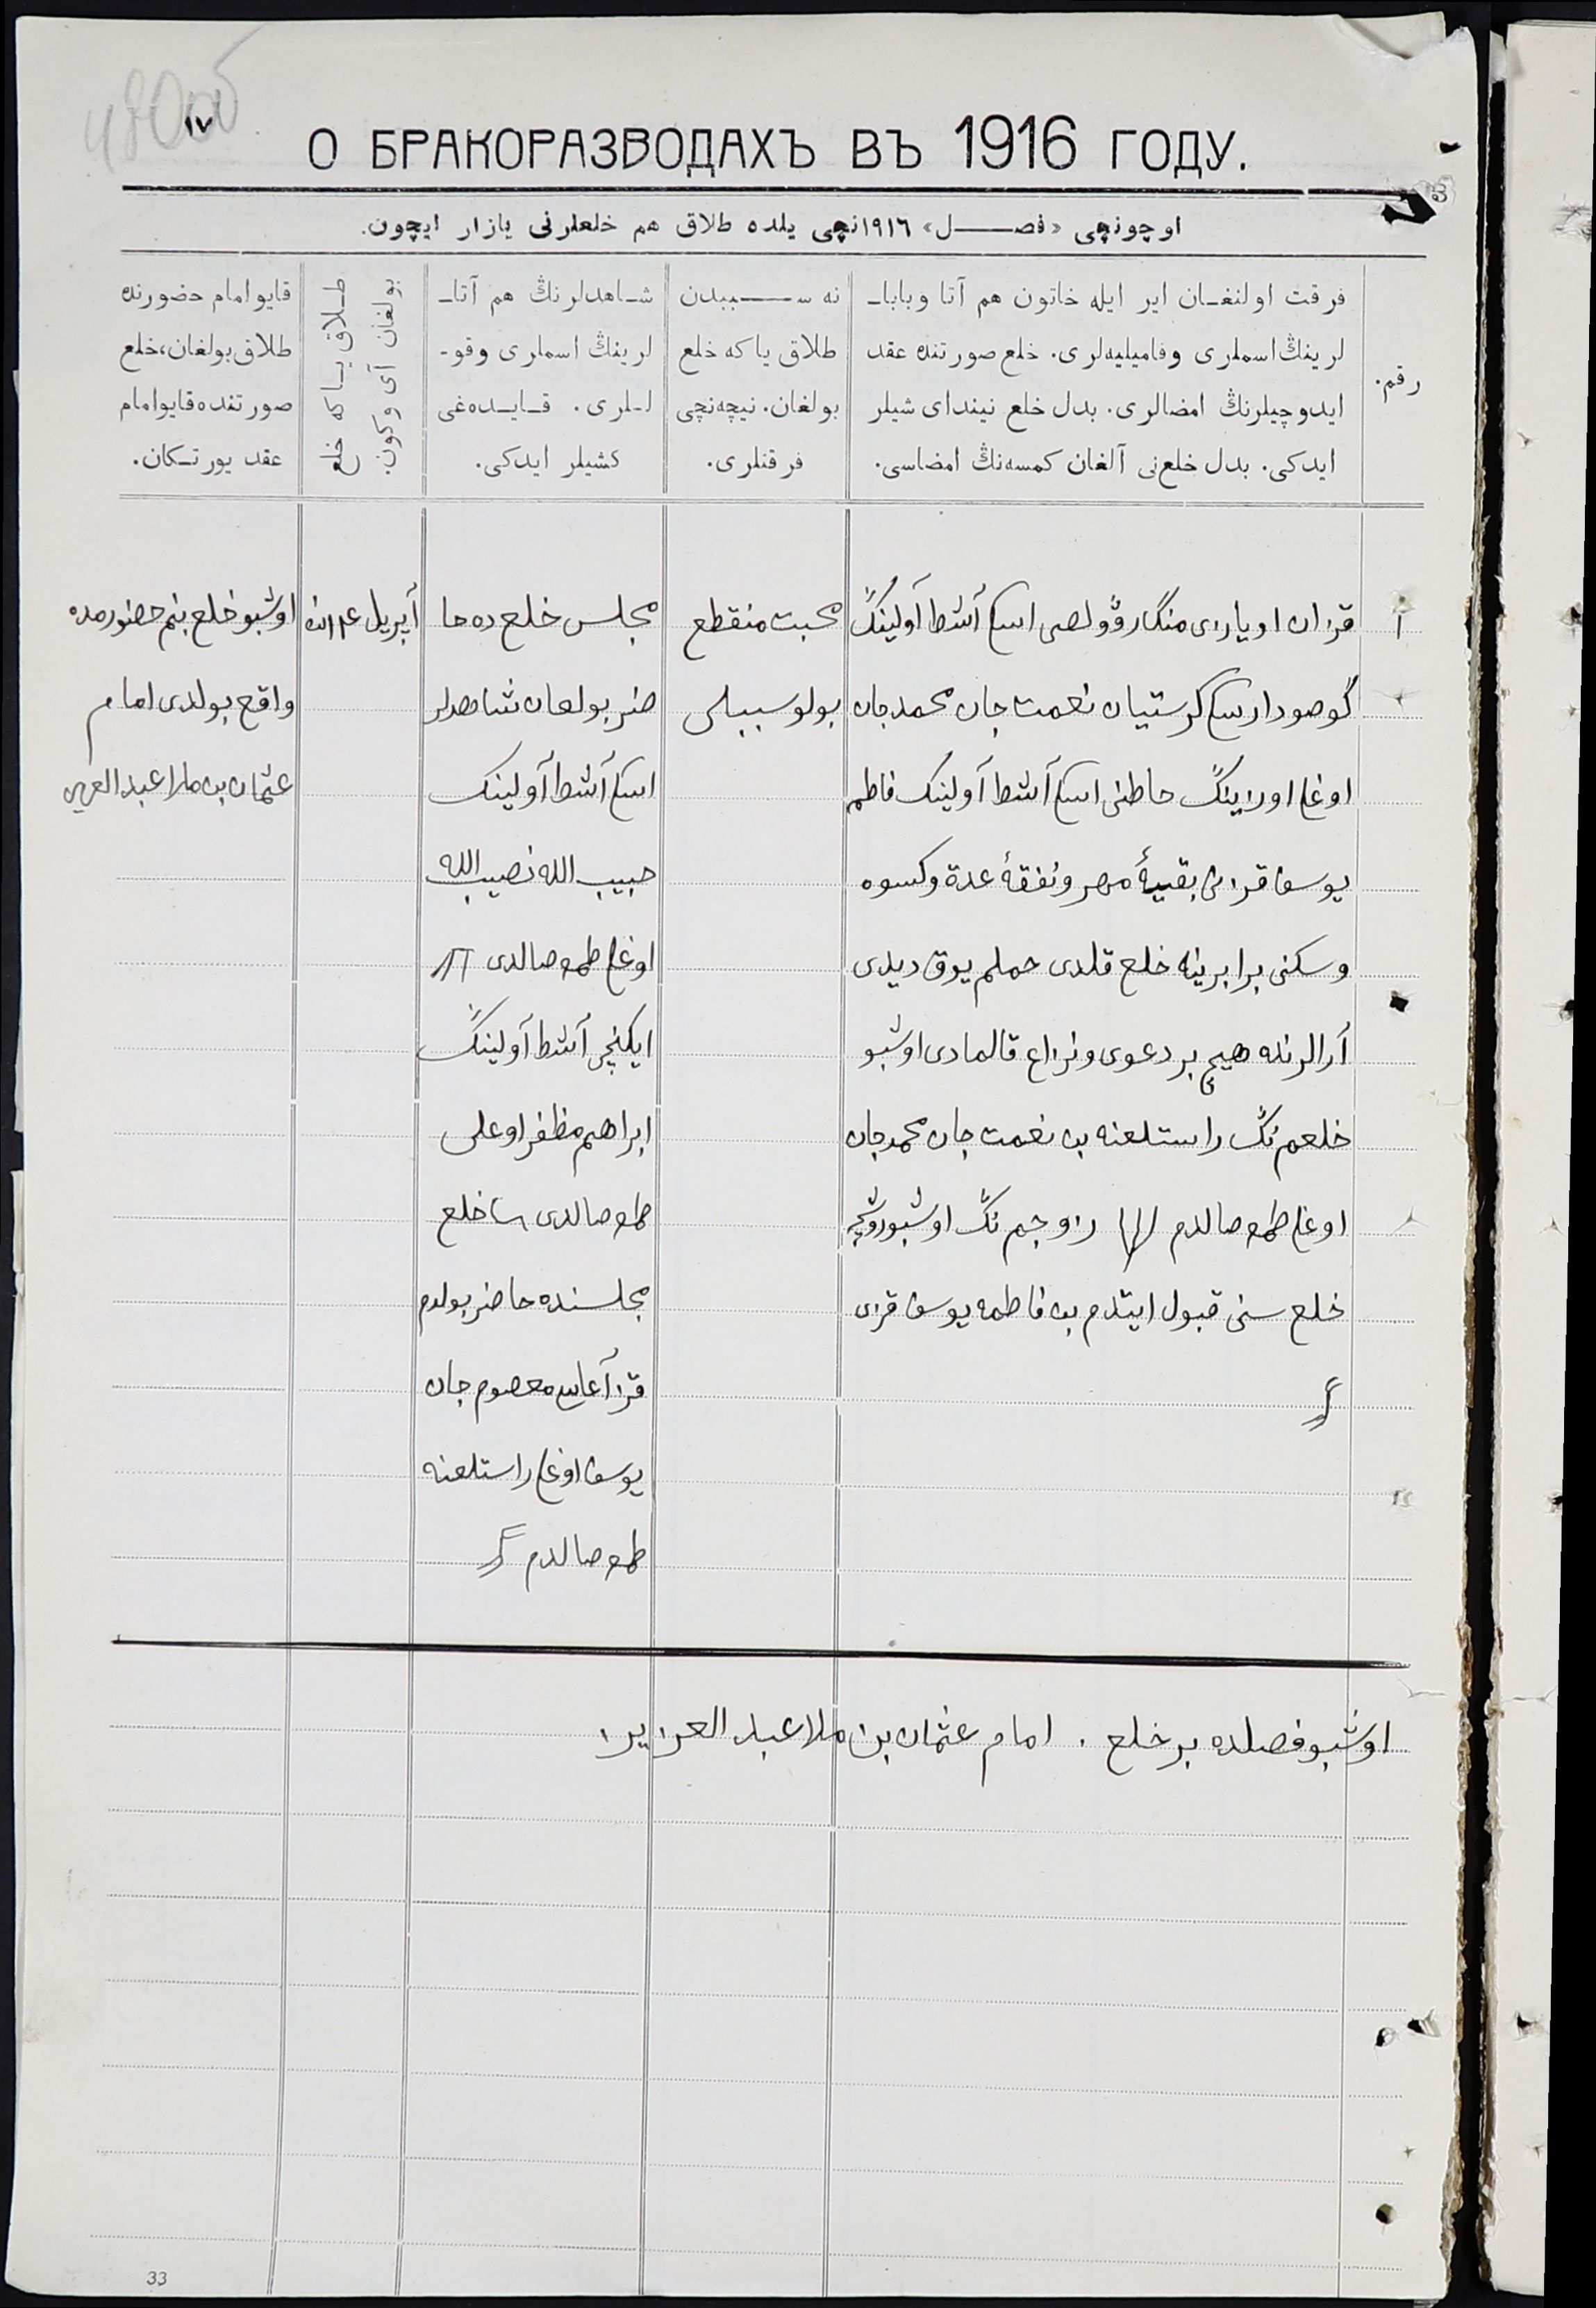 О БРАКОРАЗВОДАХЪ ВЪ 1916 ГОДУ.
١٧
اوچونچی «فصل» ١٩١٦نچی یلده طلاق هم خلعلرنی یازار ایچون.
رقم.
فرقت اولنغان ایر ایله خاتون هم آتا وبابا-
لرینڭ اسملری وفامیلیه‌لری. خلع صورتنده عقد
ایدوچیلرنڭ امضالری. بدل خلع نیندای شیلر
ایدکی. بدل خلع‌نی آلغان کمسه‌نڭ امضاسی.
نه سببدن
طلاق یا که خلع
بولغان. نیچه‌نچی
فرقتلری.
شاهدلرنڭ هم آتا-
لرینڭ اسملری وقو-
للری. قایده‌غی
کشیلر ایدکی.
طلاق یا که خلع
بولغان آی وکون.
قایو امام حضورنده
طلاق بولغان، خلع
صورتنده قایو امام
عقد یورتکان.
١
قزان اویازی منگار وولصی آشط آولینڭ
کرستیان نعمت جان محمدجان
اوغلی آشط آولینڭ فاطمه
یوسف قزی بقیهٔ مهر ونفقهٔ عدة وکسوه
وسکنی برابرینه خلع قلدی حملم یوق دیدی
آرالرنده هیچ بر دعوی ونزاع قالمادی اوشبو
خلعم نڭ راستلغنه بن نعمت جان محمدجان
اوغلی طمغه صالدم زوجم نڭ اوشبو
خلع سنی قبول ایتدم بن فاطمه یوسف قزی
محبت منقطع
بولو سببلی
مجلس خلع ده حا
ضر بولغان شاهدلر
آشط آولینڭ
حبیب الله نصیب الله
اوغلی طمغه صالدی
ایکنچی آشط آولینڭ
ابراهیم مظفر اوغلی
طمغه صالدی خلع
مجلسنده حاضر بولدم
قز آغاسی معصوم جان
یوسف اوغلی راستلغنه
طمغه صالدم
آپریل
اوشبو خلع بنم حضورمده
واقع بولدی امام
عثمان بن ملا عبد العزیز
اوشبو فصلده بر خلع . امام عثمان بن ملا عبد العزیز
33